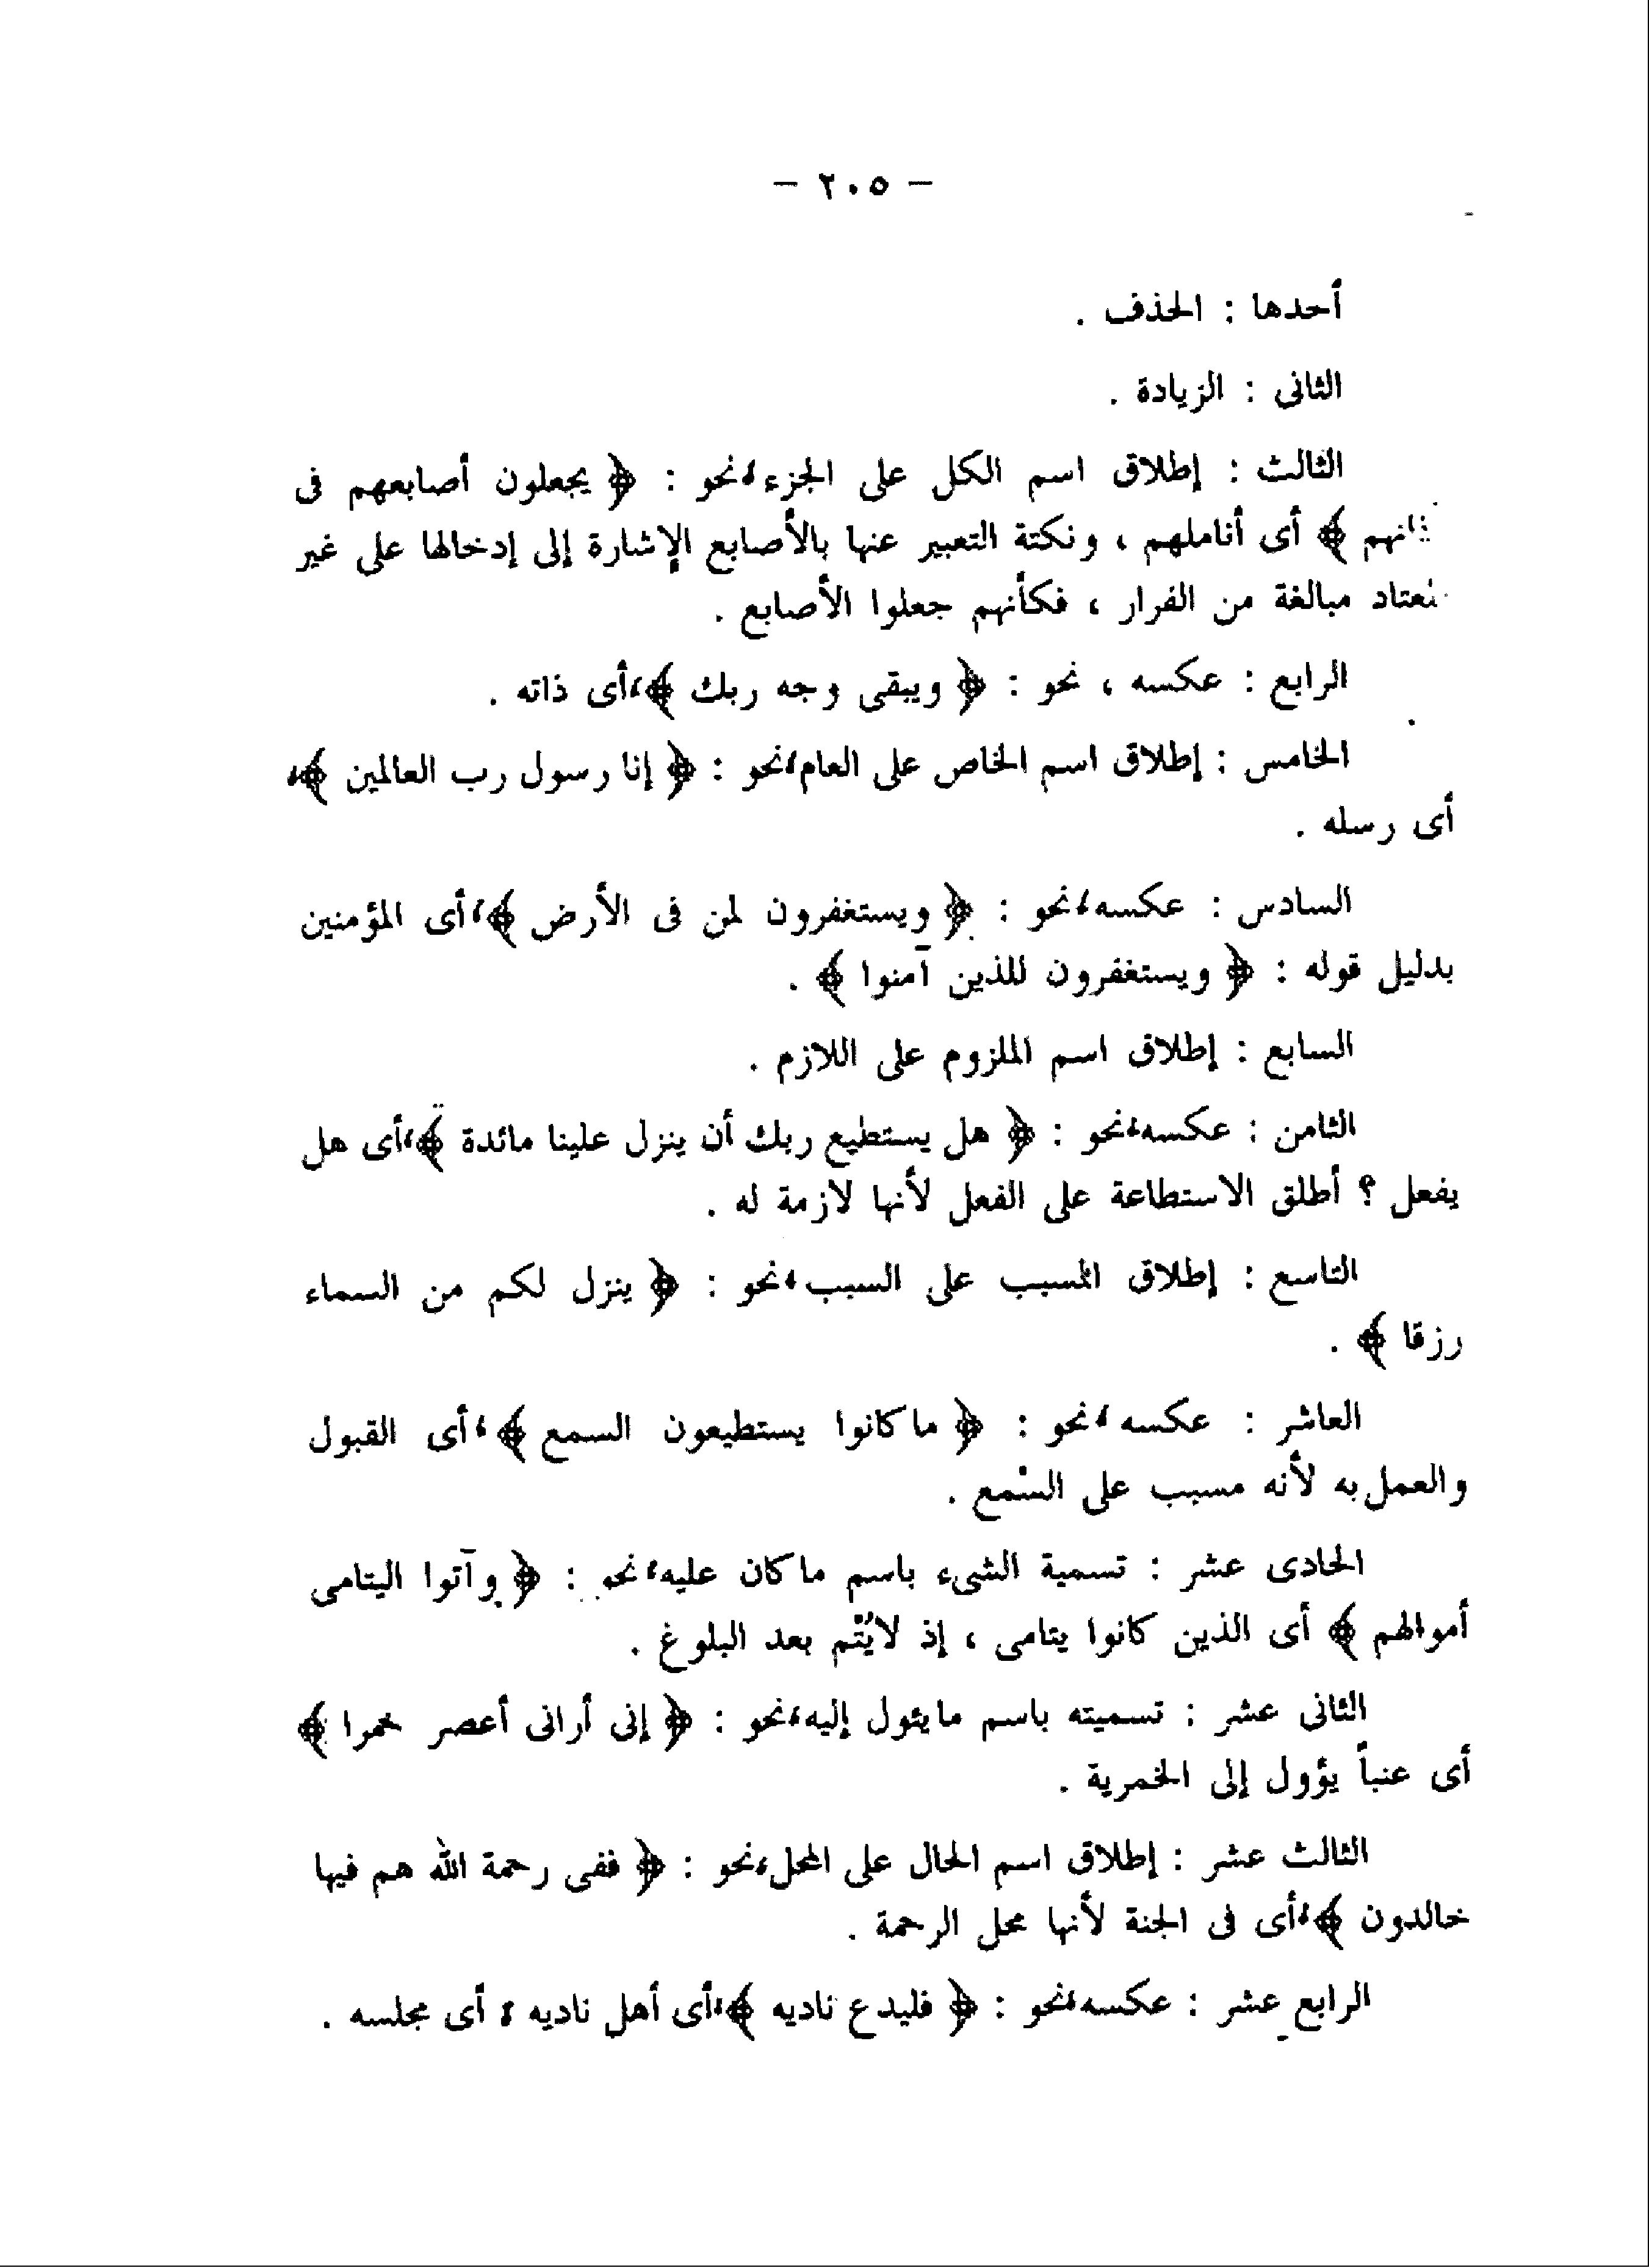 – ٢٠٥ –
أحدها : الحذف .
الثانى : الزيادة .
الثالث : إطلاق اسم الكل على الجزء، نحو : ﴿ يجعلون أصابعهم فى
﴾ أى أناملهم ، ونكتة التعبير عنها بالأصابع الإشارة إلى إدخالها على غير
مبالغة من الفرار ، فكأنهم جعلوا الأصابع .
الرابع : عكسه ، نحو : ﴿ ويبقى وجه ربك ﴾، أى ذاته .
الخامس : إطلاق اسم الخاص على العام، نحو : ﴿ إنا رسول رب العالمين ﴾،
أى رسله .
السادس : عكسه، نحو : ﴿ ويستغفرون لمن فى الأرض ﴾، أى المؤمنين
بدليل قوله : ﴿ ويستغفرون للذين آمنوا ﴾ .
السابع : إطلاق اسم الملزوم على اللازم .
الثامن : عكسه، نحو : ﴿ هل يستطيع ربك أن ينزل علينا مائدة ﴾، أى هل
يفعل ؟ أطلق الاستطاعة على الفعل لأنها لازمة له .
التاسع : إطلاق المسبب على السبب، نحو : ﴿ ينزل لكم من السماء
رزقا ﴾ .
العاشر : عكسه، نحو : ﴿ ما كانوا يستطيعون السمع ﴾، أى القبول
والعمل به لأنه مسبب على السمع .
الحادى عشر : تسمية الشىء باسم ما كان عليه، نحو : ﴿ وآتوا اليتامى
أموالهم ﴾ أى الذين كانوا يتامى ، إذ لا يُتْم بعد البلوغ .
الثانى عشر : تسميته باسم ما يئول إليه، نحو : ﴿ إنى أرانى أعصر خمرا ﴾
أى عنباً يؤول إلى الخمرية .
الثالث عشر : إطلاق اسم الحال على المحل، نحو : ﴿ ففى رحمة الله هم فيها
خالدون ﴾، أى فى الجنة لأنها محل الرحمة .
الرابع عشر : عكسه، نحو : ﴿ فليدع ناديه ﴾، أى أهل ناديه ، أى مجلسه .